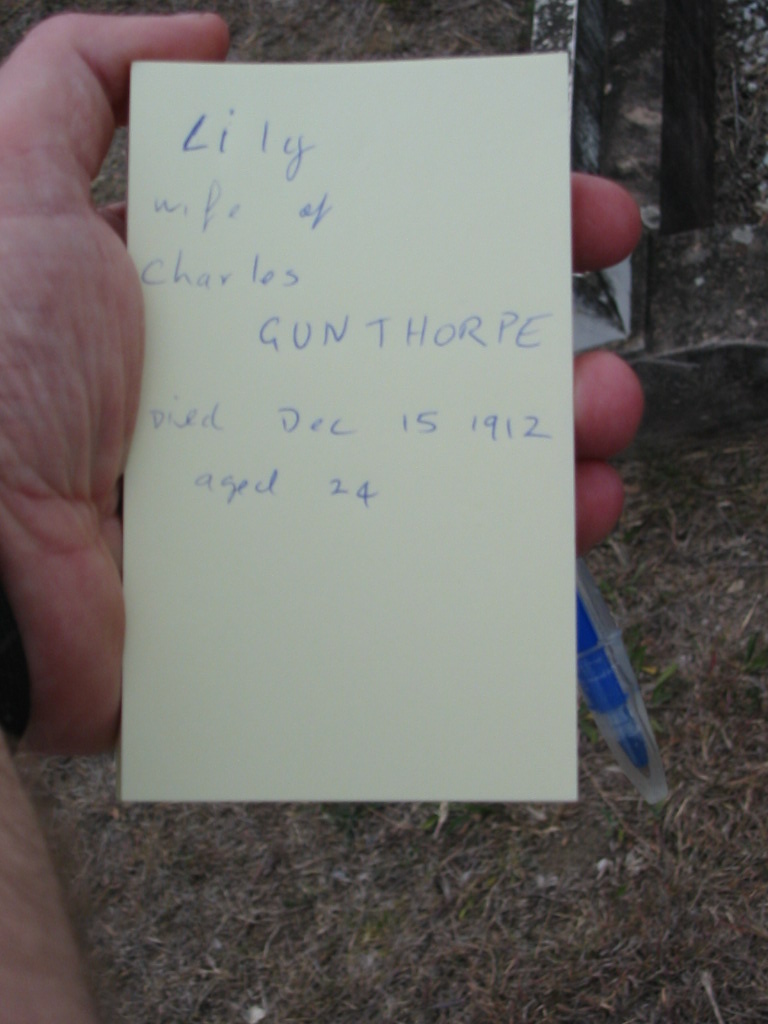 Lily
wife of
Charles
GUNTHORPE
Died Dec 15 1912
aged 24